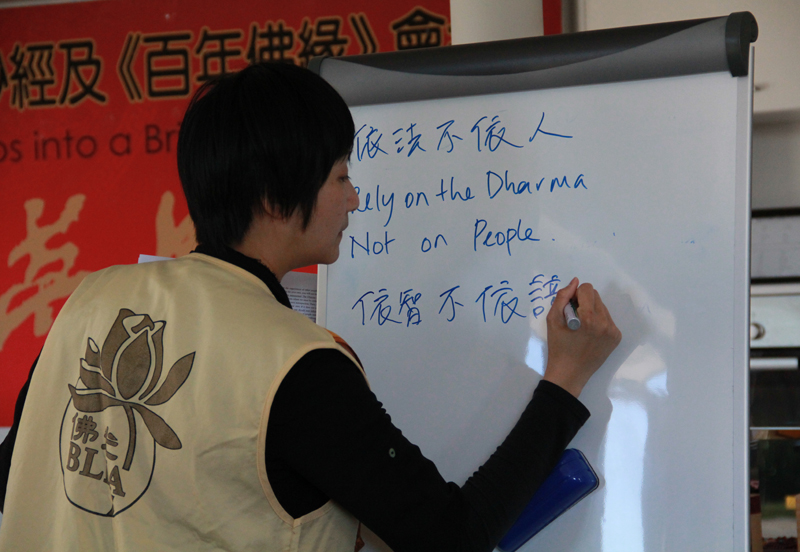 經及《百年佛緣》會
into a
依法不依人
Rely on the Dharma
Not on People.
依智不依
佛光
BLIA